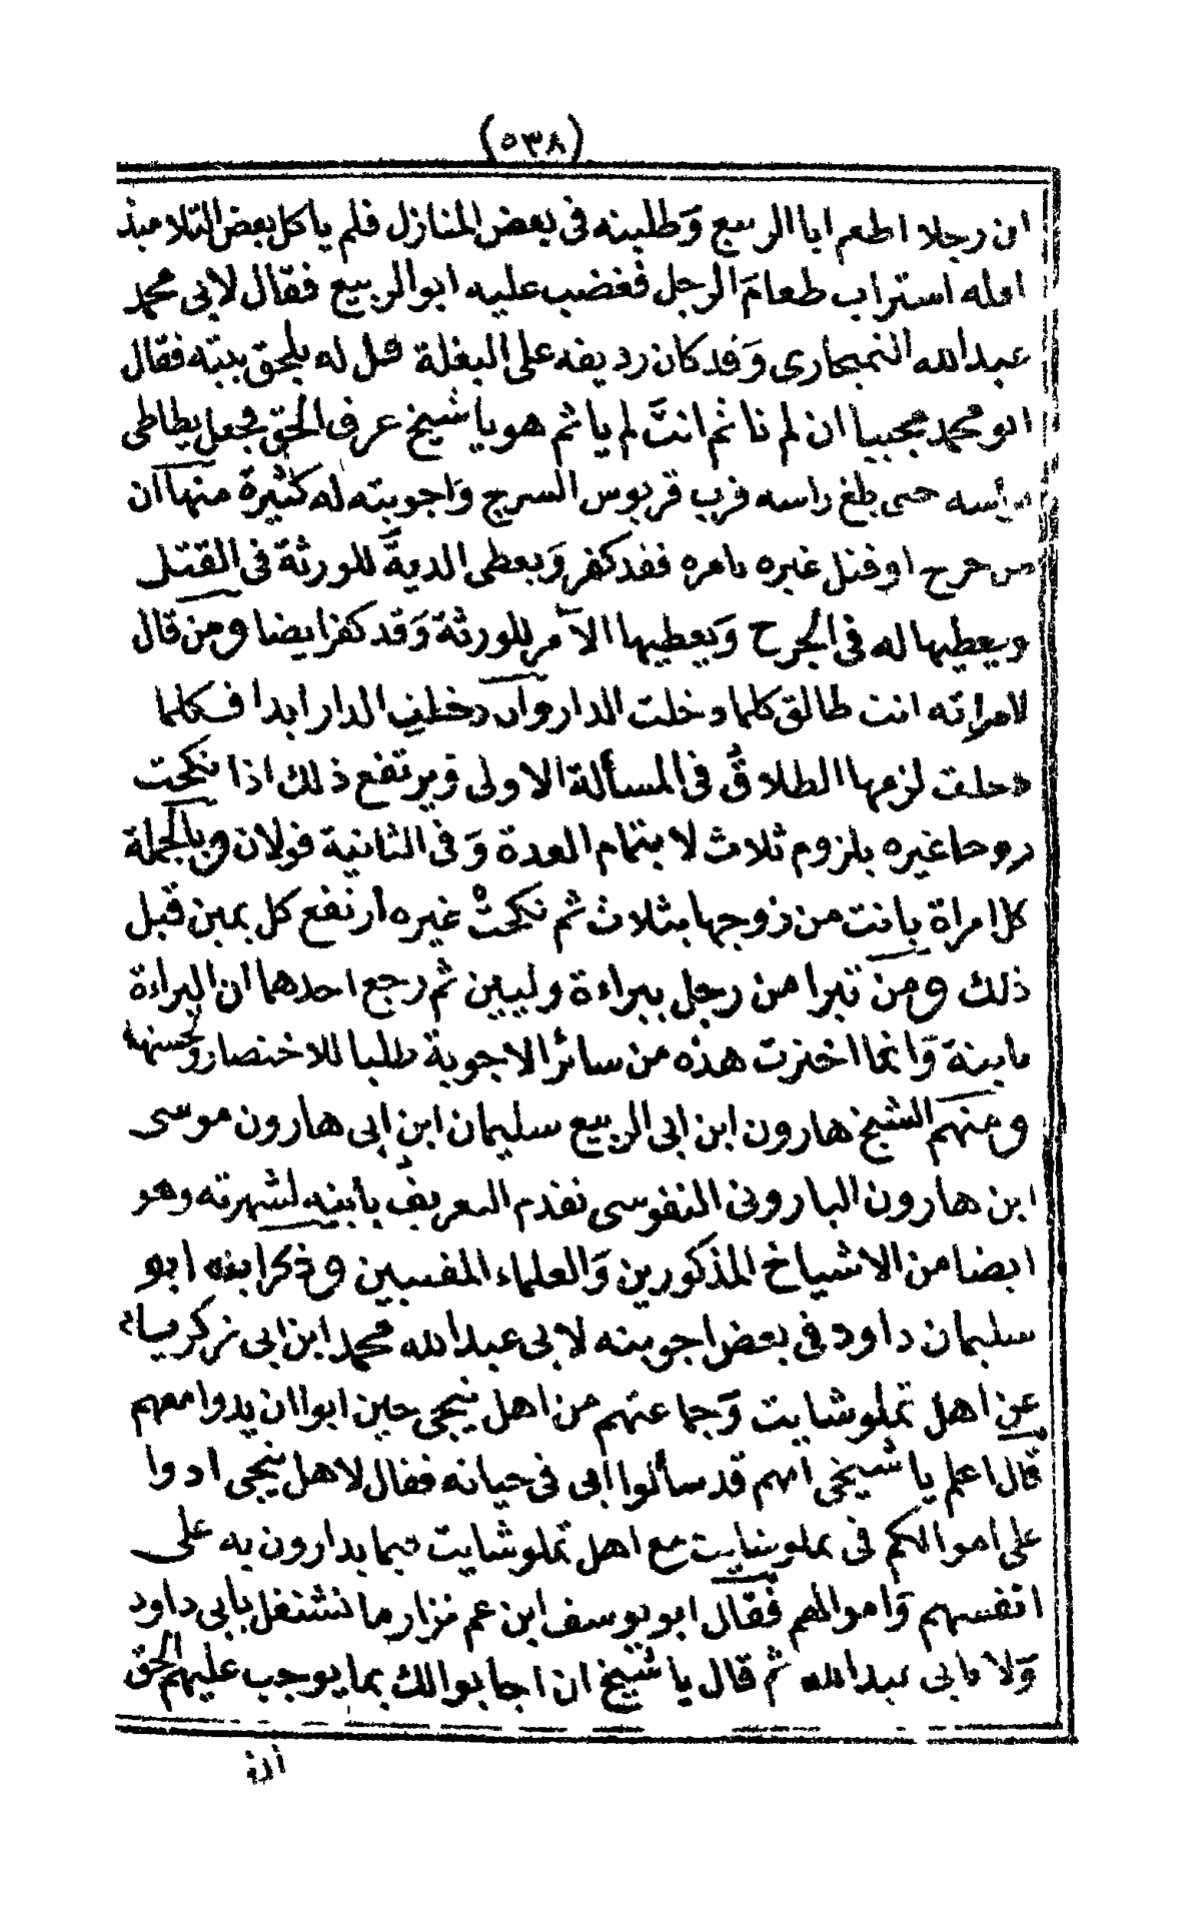 (٥٣٨)
ان رجلا اطعم ابا الربيع وطلبته في بعض المنازل فلم ياكل بعض التلاميذ
استراب طعام الرجل فغضب عليه ابو الربيع فقال لابي محمد
عبد الله وقد كان رديفه على البغلة قل له يلحق بيته فقال
ابو محمد مجيبا ان لم تاثم انت لم ياثم هو يا شيخ عرف الحق فجعل يطاطى
رأسه حتى بلغ راسه قرب قربوس السرج واجوبته له كثيرة منها ان
من جرح او قتل غيره بامره فقد كفر ويعطى الدية للورثة في القتل
ويعطيها له في الجرح ويعطيها الآمر للورثة وقد كفر ايضا ومن قال
لامراته انت طالق كلما دخلت الدار وان دخلت الدار ابدا فكلما
دخلت لزمها الطلاق في المسألة الاولى ويرتفع ذلك اذا نكحت
زوجا غيره بلزوم ثلاث لا بتمام العدة وفي الثانية قولان وبالجملة
كل امراة بانت من زوجها بثلاث ثم نكحت غيره ارتفع كل يمين قبل
ذلك ومن تبرا من رجل ببراءة وليين ثم رجع احدهما ان البراءة
باينة وانما اخترت هذه من سائر الاجوبة طلبا للاختصار ولحسنها
ومنهم الشيخ هارون ابن ابي الربيع سليمان ابن ابي هارون موسى
ابن هارون الباروني النفوسي تقدم التعريف بأبيه لشهرته وهو
ايضا من الاشياخ المذكورين والعلماء المفتيين وذكر ابنه ابو
سليمان داود في بعض اجوبته لابي عبد الله محمد ابن ابي زكرياء
عن اهل تملوشايت وجماعتهم من اهل ينجى حين ابوا ان يدوا معهم
قال اعلم يا شيخي انهم قد سألوا ابي في حياته فقال لاهل ينجى ادوا
على اموالكم في تملوشايت مع اهل تملوشايت فيما يدارون به على
انفسهم واموالهم فقال ابو يوسف ابن عم نزار ما نشتغل بابي داود
ولا بابي عبد الله ثم قال يا شيخ ان اجابوا لك بما يوجب عليهم الحق